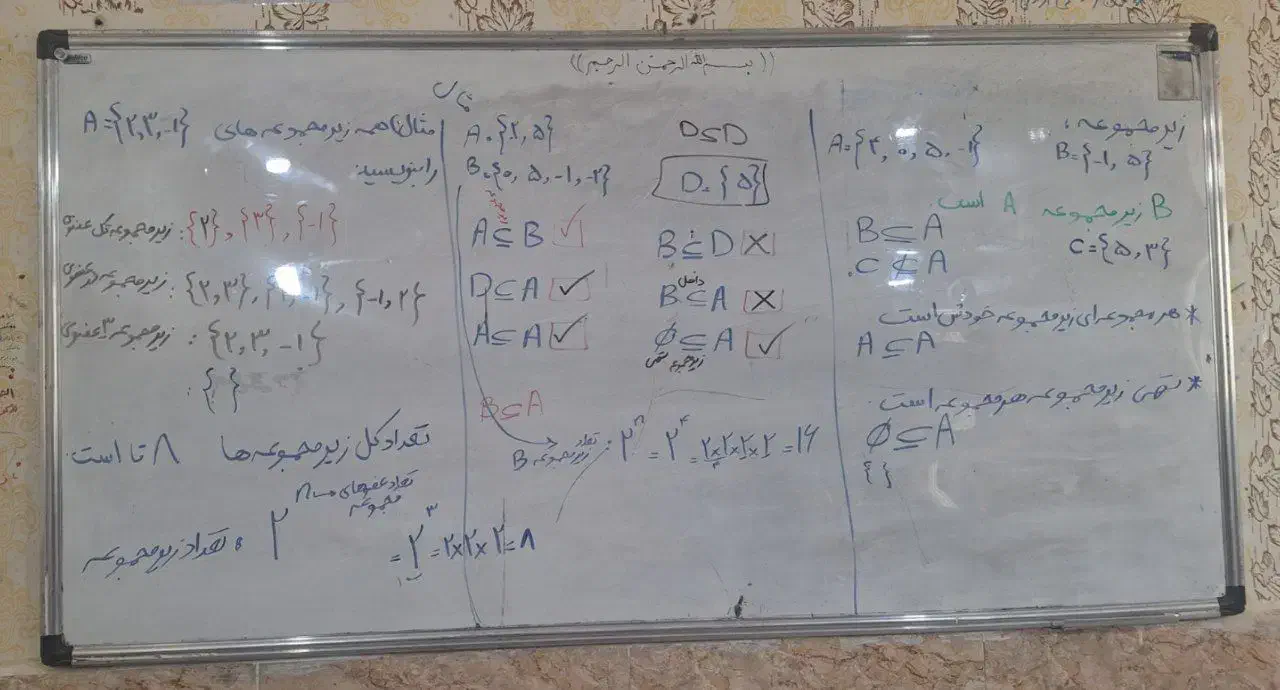 ((بسم الله الرحمن الرحیم))
زیرمجموعه:
A={۲, ۰, ۵, -۱}
B={-۱, ۵}
B زیرمجموعه A است
B⊆A
C={۵,۳}
C⊈A
* هر مجموعه‌ای زیرمجموعه خودش است
A⊆A
* تهی زیرمجموعه هر مجموعه است.
∅⊆A
{ }
A={۲,۵}
D⊆D
B={۰, ۵, -۱, -۲}
D={۵}
A⊆B ✓
B⊆D ×
D⊆A ✓
داخل
B⊆A ×
A⊆A ✓
∅⊆A ✓
زیرمجموعه تهی
B⊆A
تعداد زیرمجموعه B : ۲ⁿ = ۲⁴ = ۲×۲×۲×۲ = ۱۶
مثال: همه زیرمجموعه‌های A={۲,۳,-۱}
را بنویسید
زیرمجموعه تک عضوی: {۲}, {۳}, {-۱}
زیرمجموعه دو عضوی: {۲,۳}, {۳,-۱}, {-۱,۲}
زیرمجموعه ۳ عضوی: {۲,۳,-۱}
: { }
تعداد کل زیرمجموعه‌ها ۸ تا است
تعداد عضوهای مجموعه → n
تعداد زیرمجموعه: ۲ⁿ = ۲³ = ۲×۲×۲ = ۸